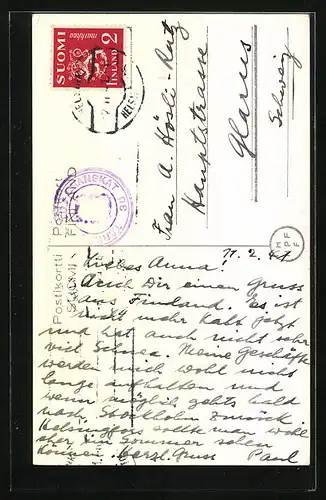 SUOMI
2
markkaa
FINLAND
HELSINKI
Postikortti
Frau A. Hösli-Rutz
Hauptstrasse
Glarus
Schweiz
11.2.41
Liebes Anna!
Auch Dir einen Gruss
aus Finland. Es ist
nicht mehr kalt jetzt
und hat auch nicht sehr
viel Schnee. Meine Geschäfte
werden mich wohl nicht
lange aufhalten und
wenn möglich gehts bald
nach Stockholm zurück
Helsingfors sollte man wohl
eher im Sommer sehen
können. herzl. Gruss Paul